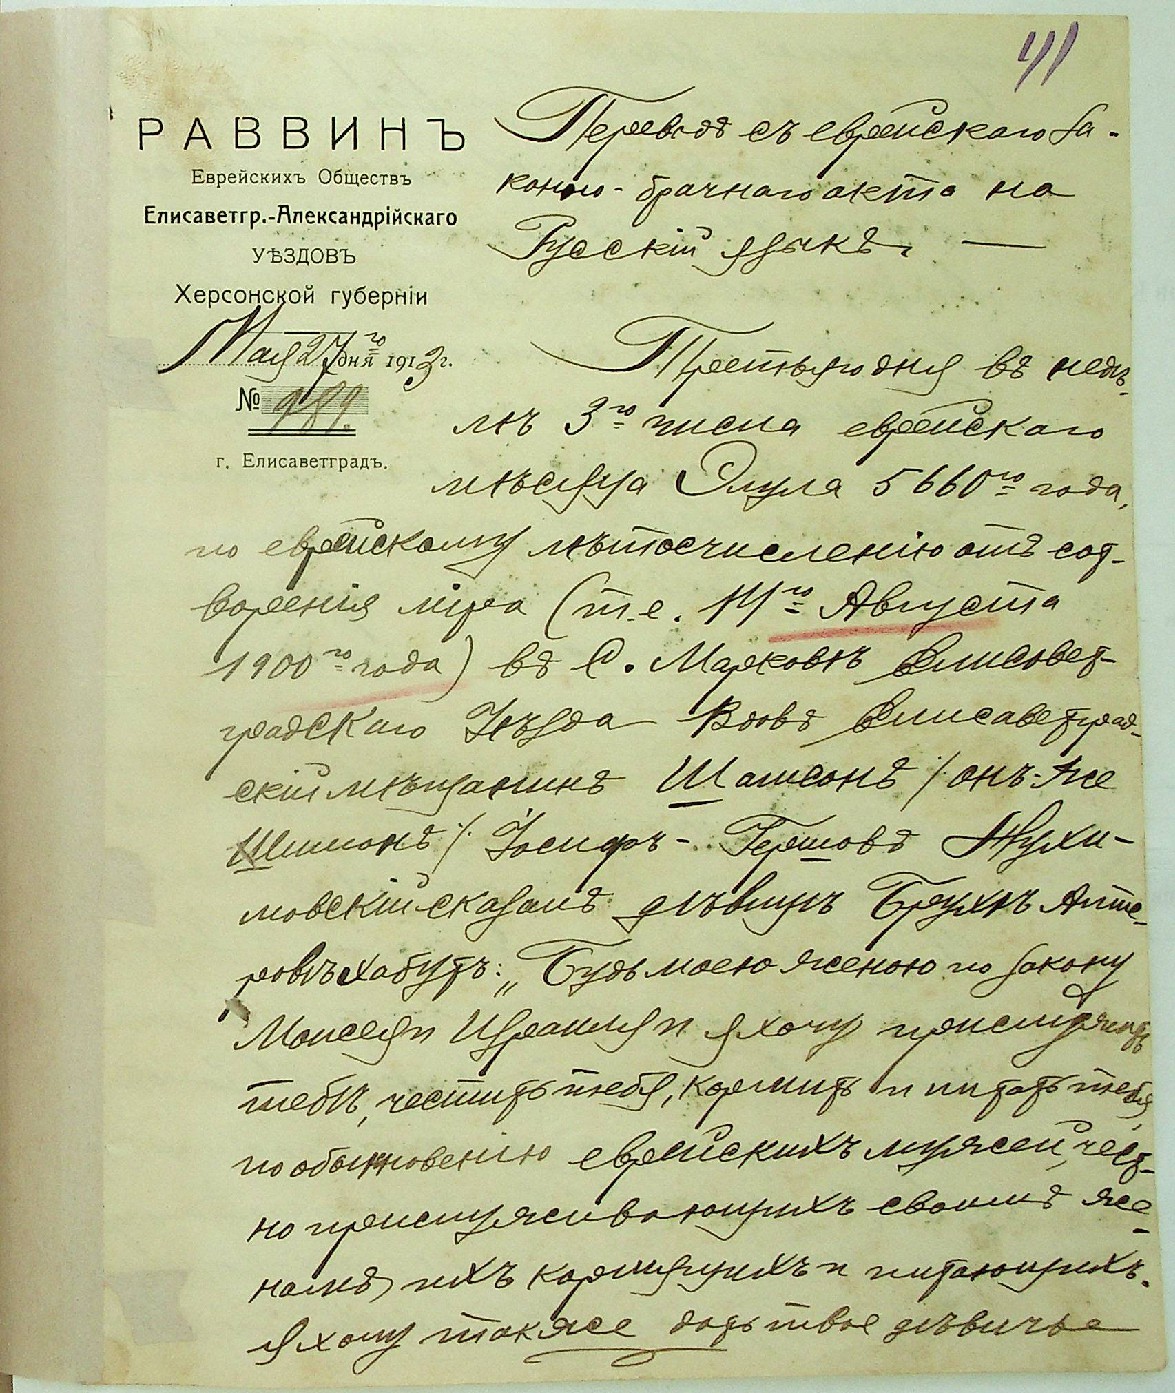 41
РАВВИНЪ
Еврейскихъ Обществъ
Елисаветгр.-Александрійскаго
УѢЗДОВЪ
Херсонской губерніи
Мая 27го дня 1913 г.
№ 989.
г. Елисаветградъ.
Переводъ съ еврейскаго за-
конно-брачнаго акта на
Русскій языкъ. —
Третьяго дня въ недѣ-
лѣ 3го числа еврейскаго
мѣсяца Элула 5660го года,
по еврейскому лѣтосчисленію отъ сот-
воренія міра (т.е. 14го Августа
1900го года) въ С. Марковѣ Елисавет-
градскаго Уѣзда Вдовъ Елисаветград-
скій мѣщанинъ Шамсонъ /онъ-же
Шимонъ/ Іосифъ-Гершовъ Жухи-
мовскій сказалъ дѣвицѣ Брухѣ Алте-
ровѣ Хабутъ: „Будь моею женою по закону
Моисея и Израиля и я хочу прислуживать
тебѣ, чтить тебя, кормить и питать тебя
по обыкновенію еврейскихъ мужей, чест-
но прислуживающихъ своимъ же-
намъ, ихъ кормящихъ и питающихъ.
Я хочу также дать твое дѣвичье